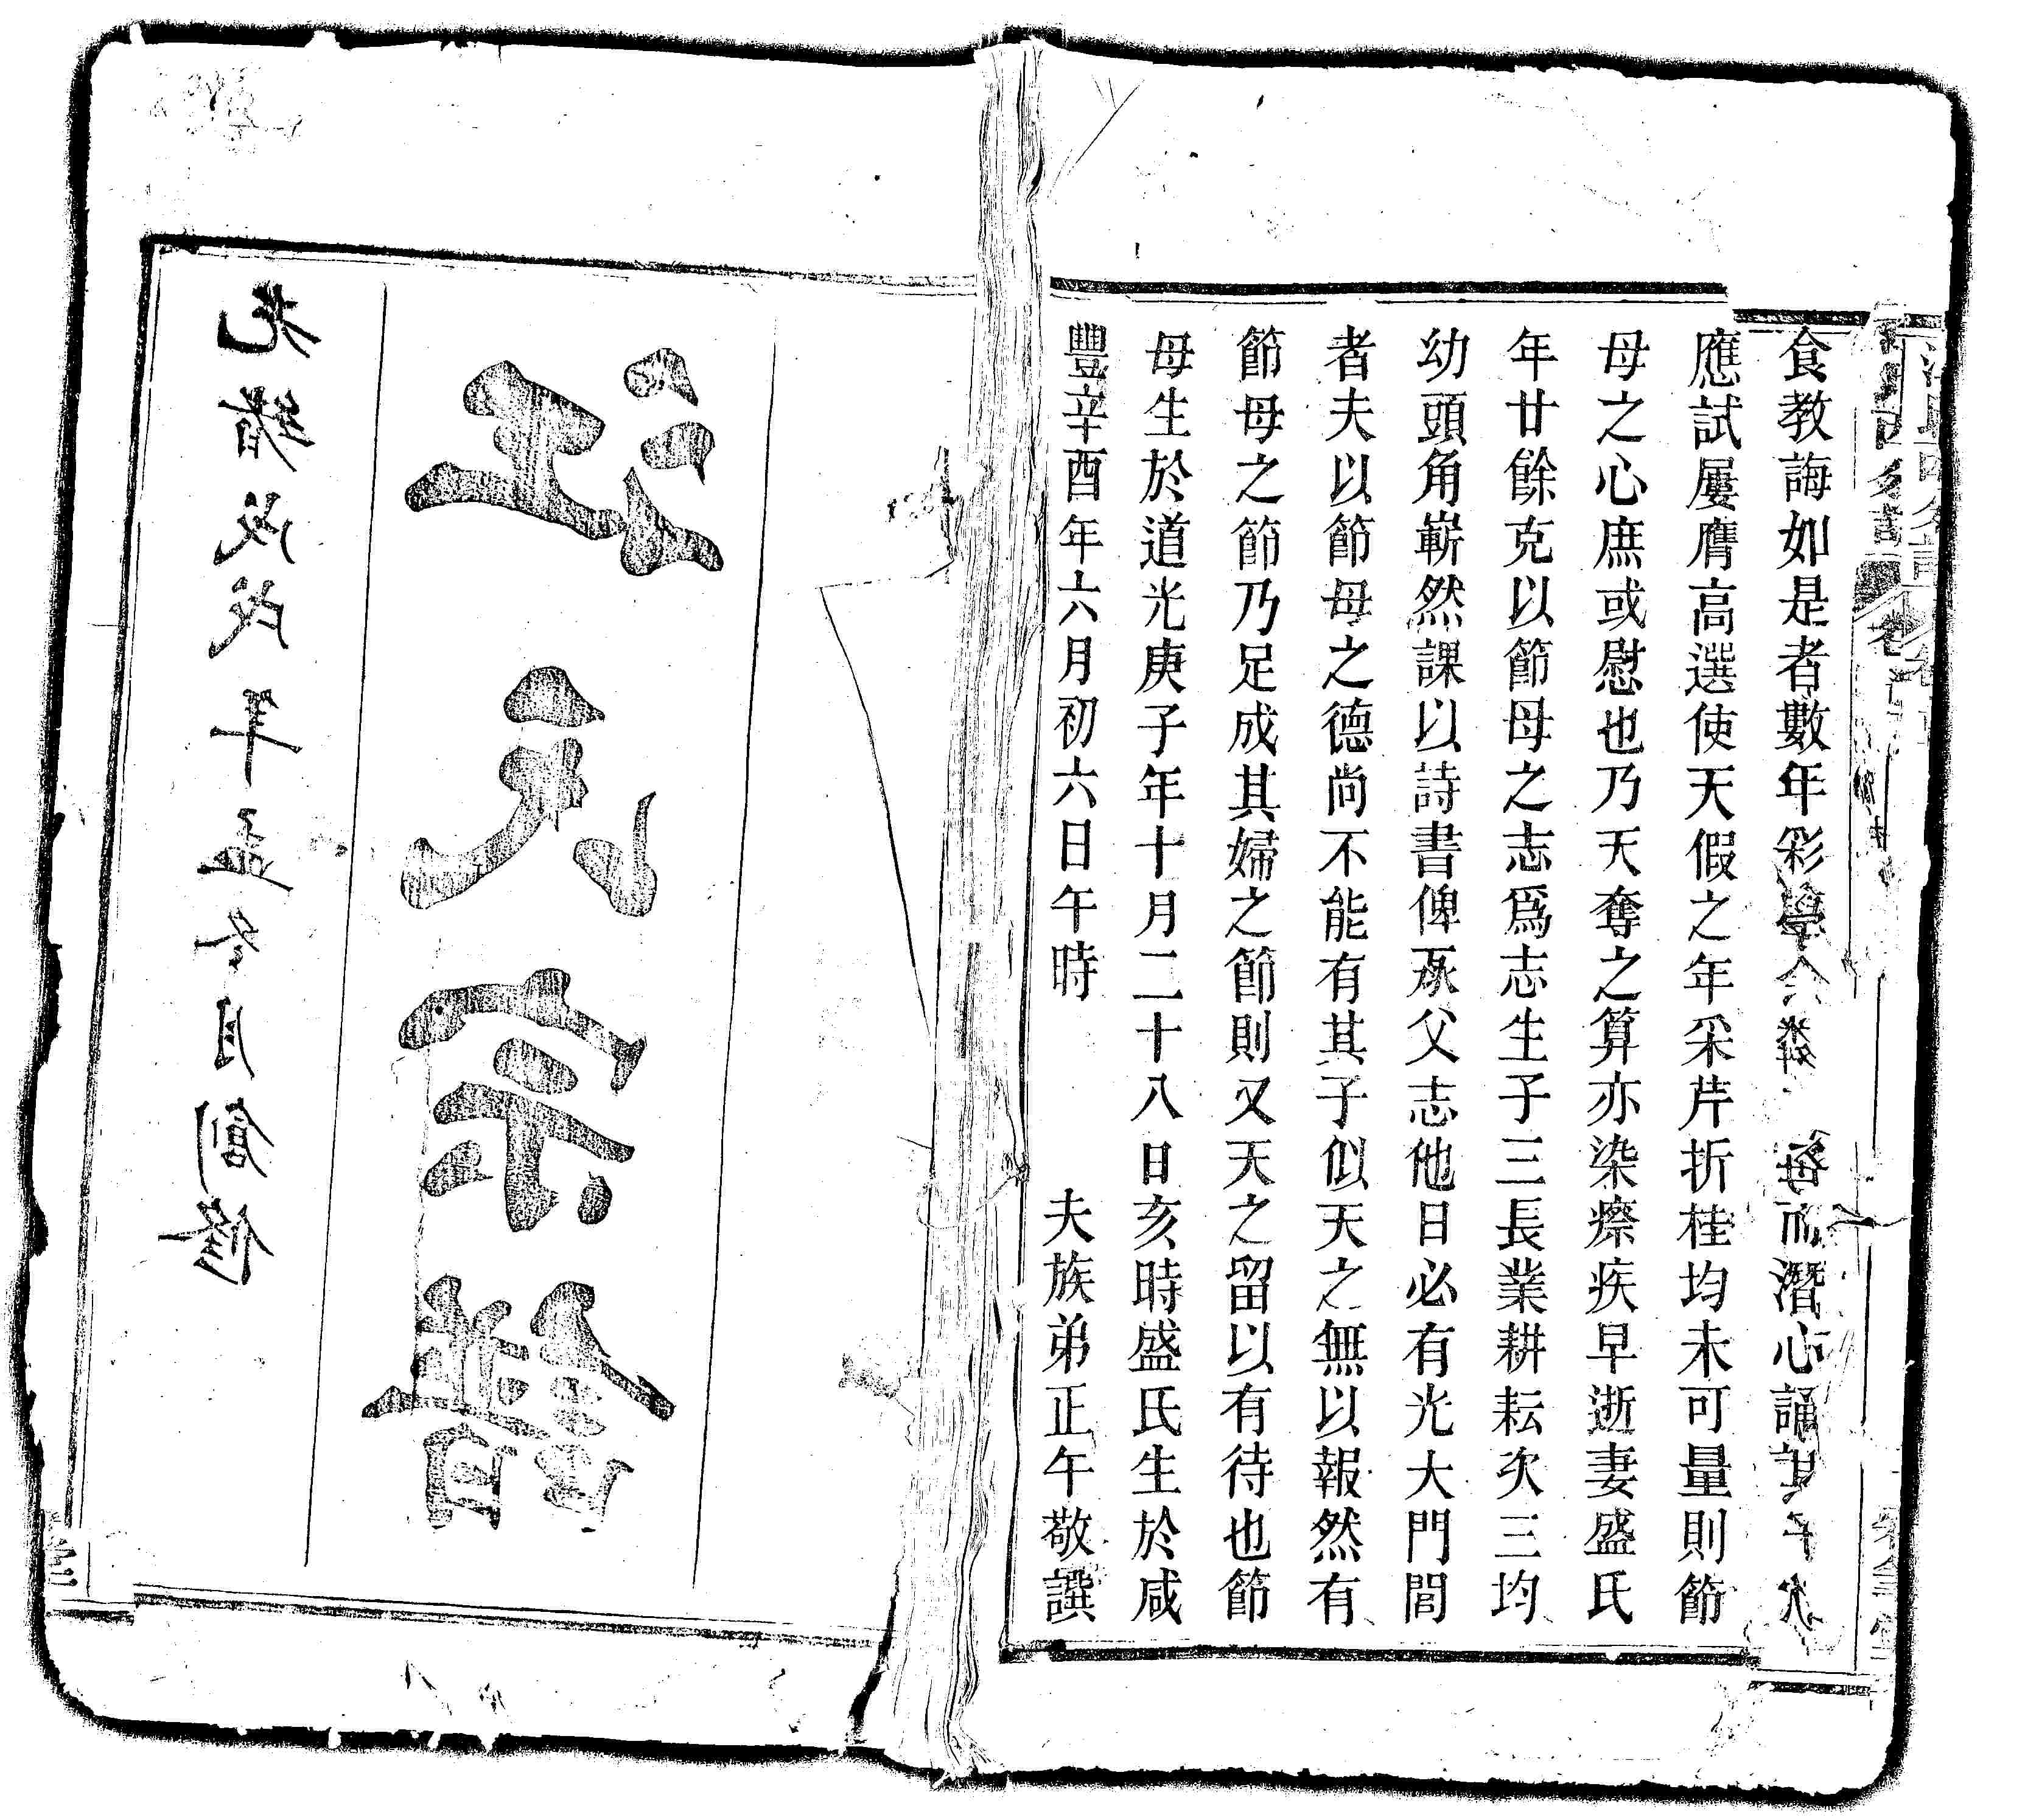 食教誨如是者數年彩學而潛心誦其
應試屢膺高選使天假之年采芹折桂均未可量則節
母之心庶或慰也乃天奪之算亦染瘵疾早逝妻盛氏
年廿餘克以節母之志爲志生子三長業耕耘次三均
幼頭角嶄然課以詩書俾承父志他日必有光大門閭
者夫以節母之德尚不能有其子似天之無以報然有
節母之節乃足成其婦之節則又天之留以有待也節
母生於道光庚子年十月二十八日亥時盛氏生於咸
豐辛酉年六月初六日午時 夫族弟正午敬譔
汪氏宗譜
光緒戊戌年孟冬月創修